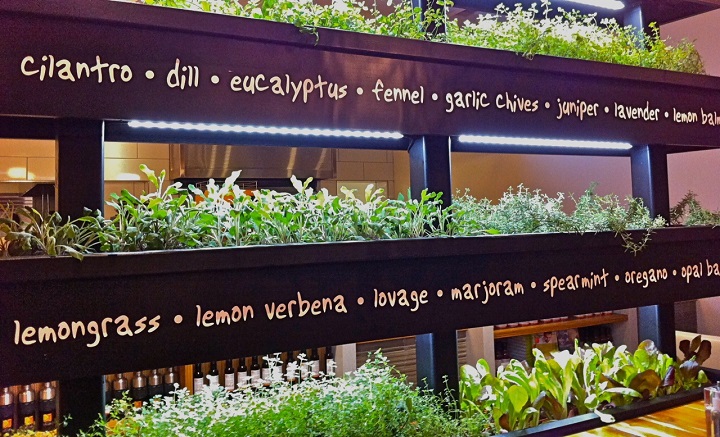 cilantro • dill • eucalyptus • fennel • garlic chives • juniper • lavender • lemon balm
lemongrass • lemon verbena • lovage • marjoram • spearmint • oregano • opal ba